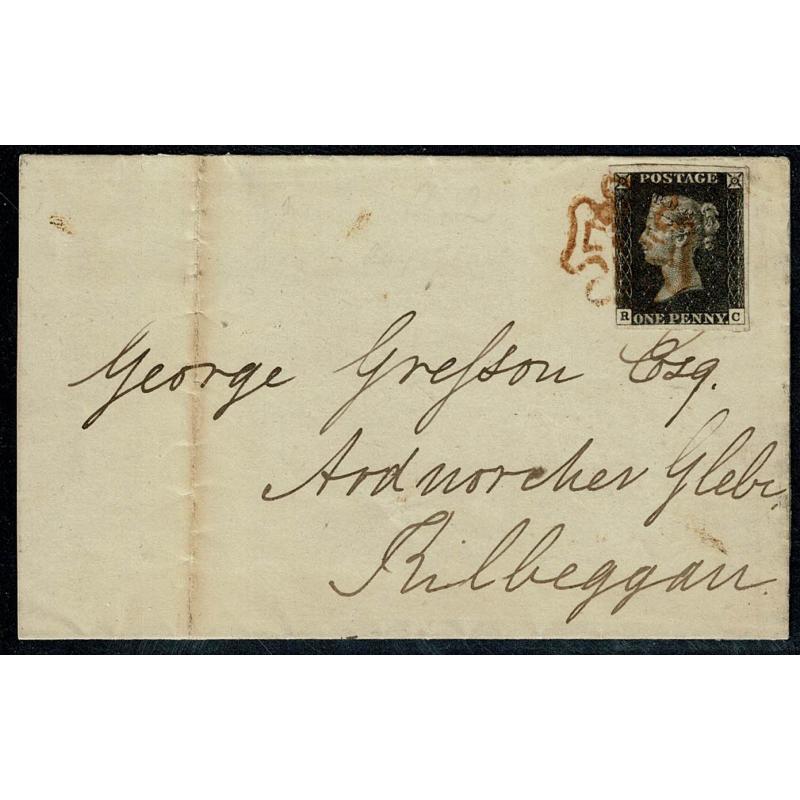 POSTAGE
R ONE PENNY C
George Greſson Esq.
Ardnorcher Glebe
Kilbeggan.